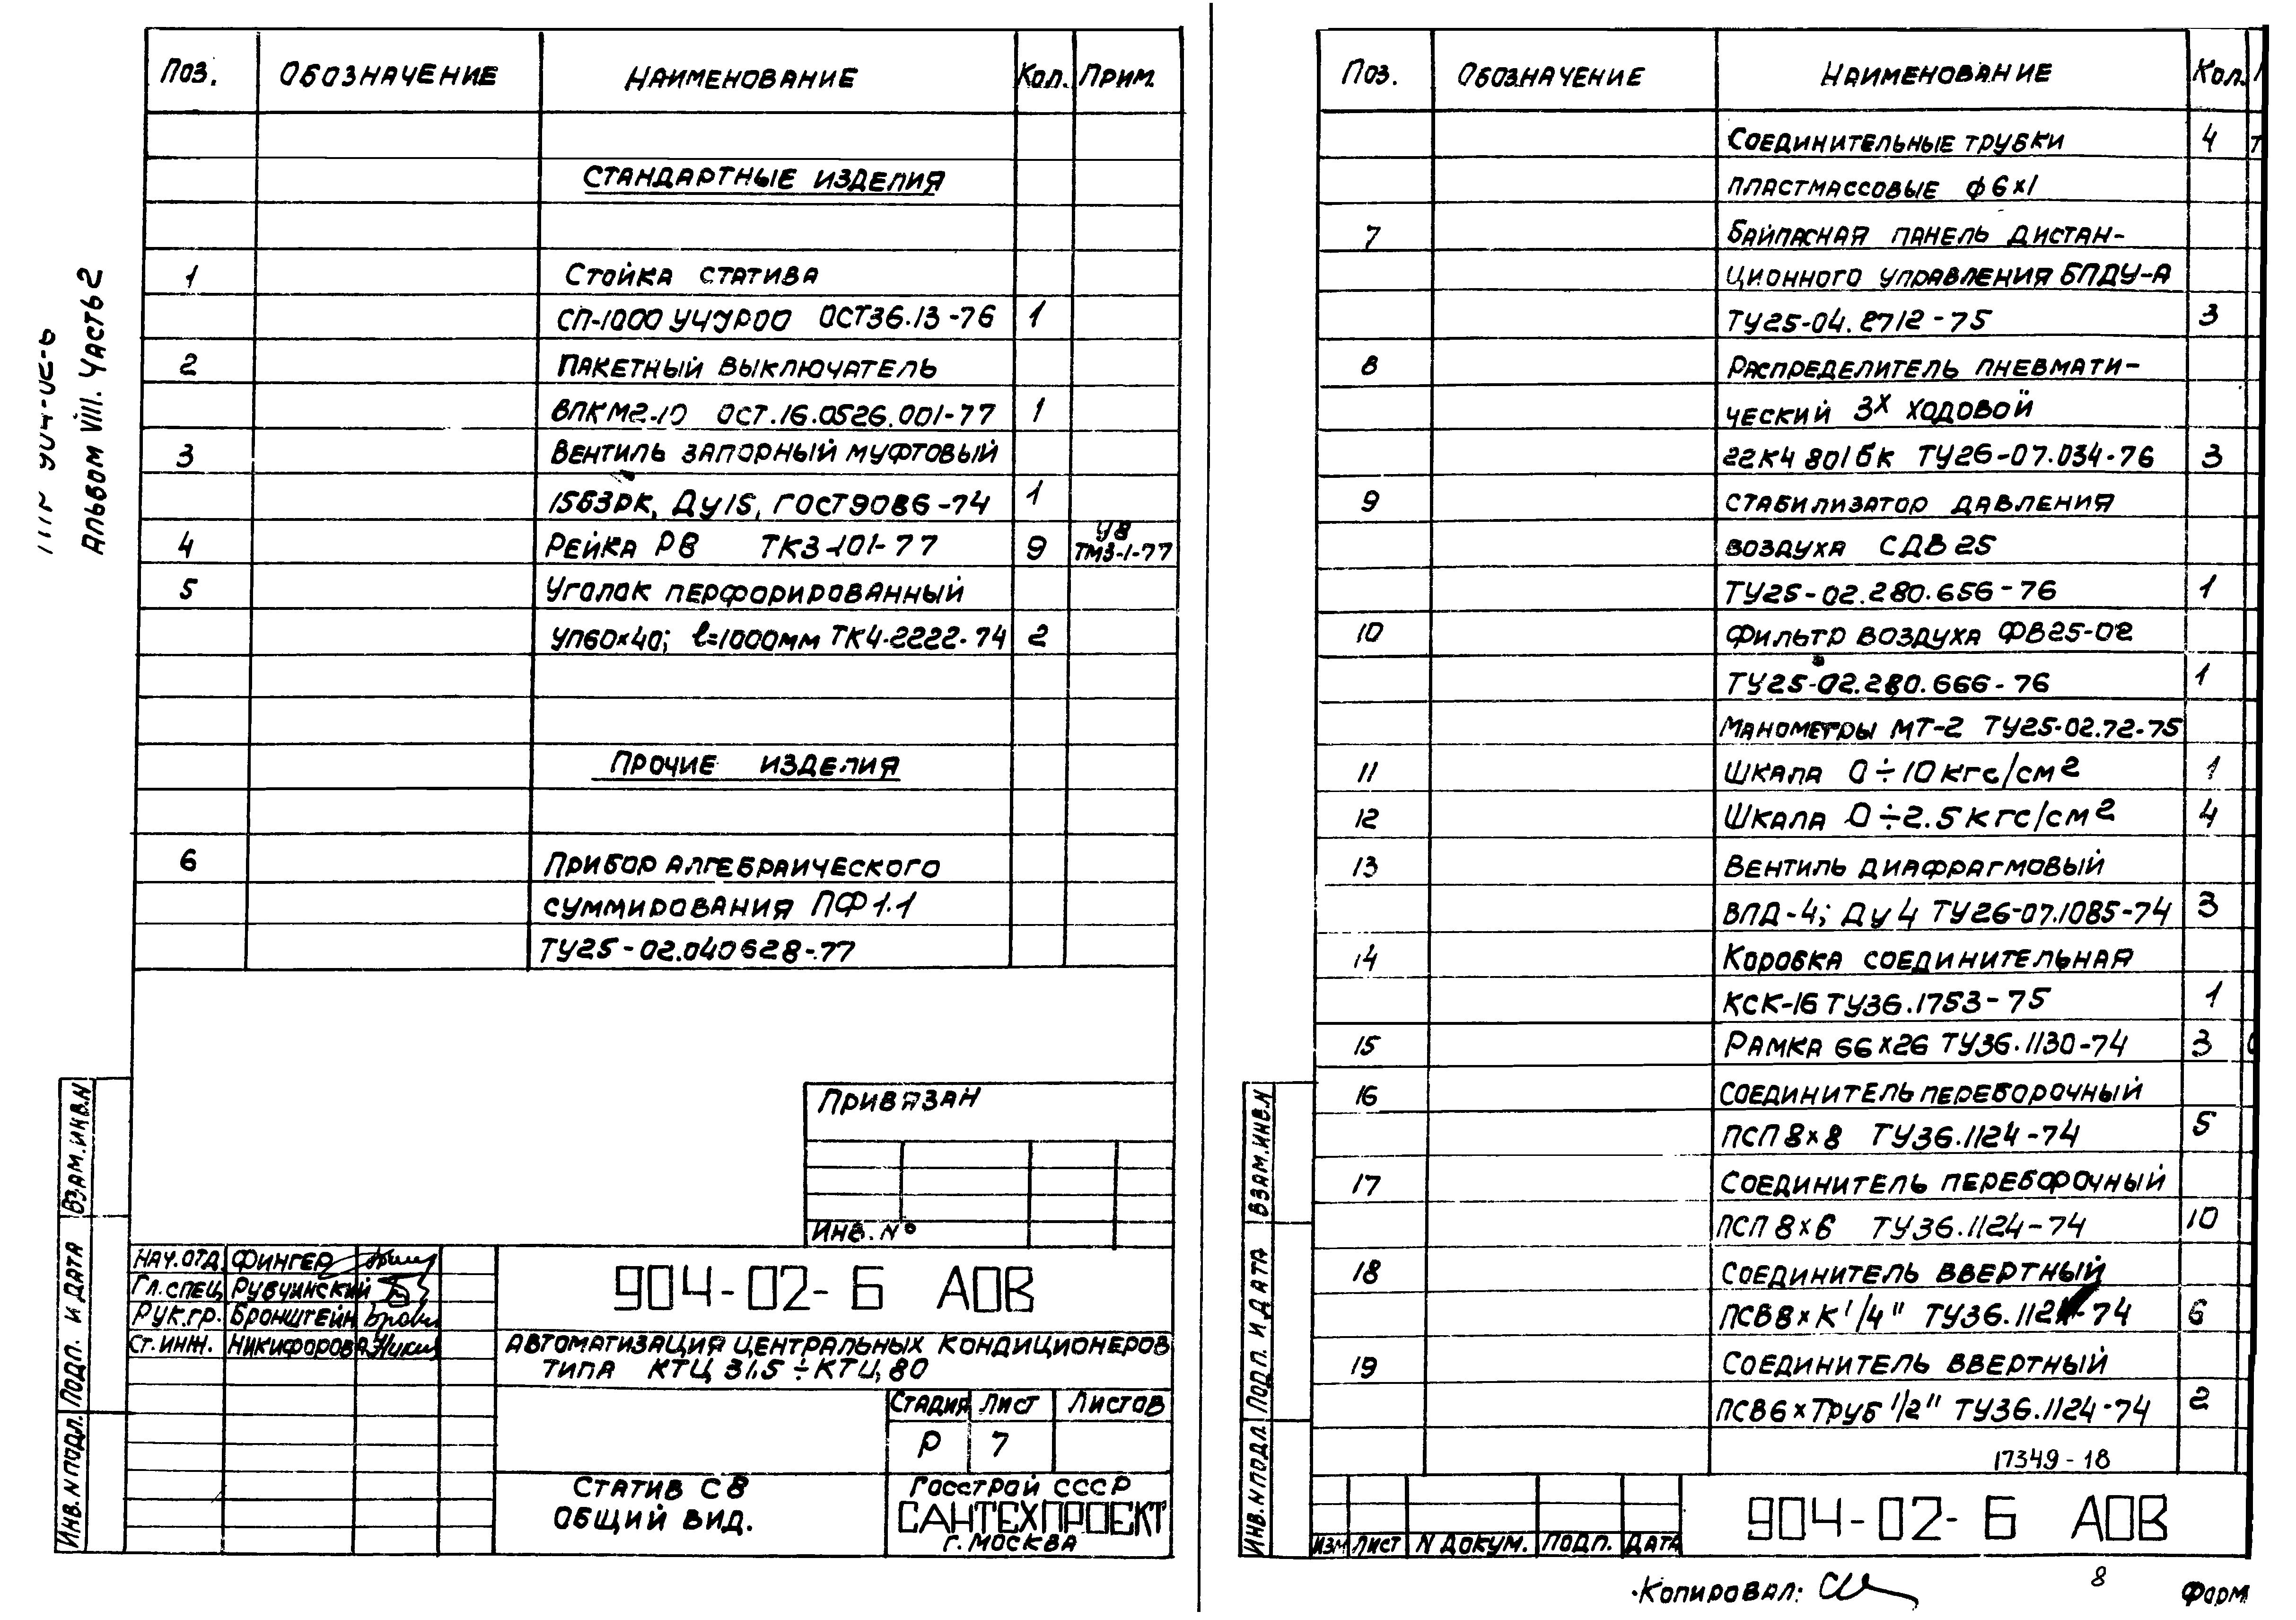 Альбом VIII. Часть 2
Поз. Обозначение Наименование Кол. Прим.
Стандартные изделия
1 Стойка статива
СП-1000 УЧУР00 ОСТ36.13-76 1
2 Пакетный выключатель
ВПКМ2-10 ОСТ.16.0526.001-77 1
3 Вентиль запорный муфтовый
15Б3рк, Ду15, ГОСТ9086-74 1
4 Рейка РВ ТК3-101-77 9 УВ ТМ3-1-77
5 Уголок перфорированный
УП60×40; ℓ=1000мм ТК4-2222-74 2
Прочие изделия
6 Прибор алгебраического
суммирования ПФ1.1
ТУ25-02.040628-77
Привязан
Инв. №
Нач.отд. Фингер
Гл.спец. Рубчинский
Рук.гр. Бронштейн
Ст.инж. Никифорова
904-02-Б АОВ
Автоматизация центральных кондиционеров
типа КТЦ 31.5÷КТЦ 80
Стадия Лист Листов
Р 7
Статив СВ
Общий вид.
Госстрой СССР
САНТЕХПРОЕКТ
г. Москва
Инв.N подл. Подп. и дата Взам.инв.N
Поз. Обозначение Наименование Кол.
Соединительные трубки 4
пластмассовые ф6×1
7 Байпасная панель дистан-
ционного управления БПДУ-А
ТУ25-04.2712-75 3
8 Распределитель пневмати-
ческий 3х ходовой
22К4 801бк ТУ26-07.034-76 3
9 Стабилизатор давления
воздуха СДВ25
ТУ25-02.280.656-76 1
10 Фильтр воздуха ФВ25-02
ТУ25-02.280.666-76 1
Манометры МТ-2 ТУ25-02.72-75
11 Шкала 0÷10кгс/см2 1
12 Шкала 0÷2.5кгс/см2 4
13 Вентиль диафрагмовый
ВПД-4; Ду4 ТУ26-07.1085-74 3
14 Коробка соединительная
КСК-16 ТУ36.1753-75 1
15 Рамка 66×26 ТУ36.1130-74 3
16 Соединитель переборочный
ПСП 8×8 ТУ36.1124-74 5
17 Соединитель переборочный
ПСП 8×6 ТУ36.1124-74 10
18 Соединитель ввертный
ПСВ8×К1/4" ТУ36.1124-74 6
19 Соединитель ввертный
ПСВ6×Труб 1/2" ТУ36.1124-74 2
17349-18
Изм Лист N докум. Подп. Дата
904-02-Б АОВ
Инв.N подл Подп. и дата Взам.инв.N
8
Копировал: Форм